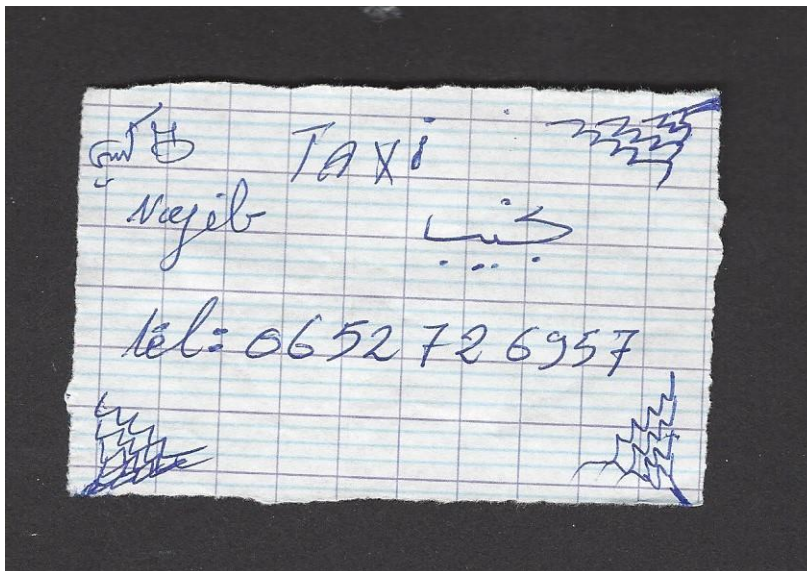 طاكسي TAXi
Nagib نجيب
tél: 0652 72 6957